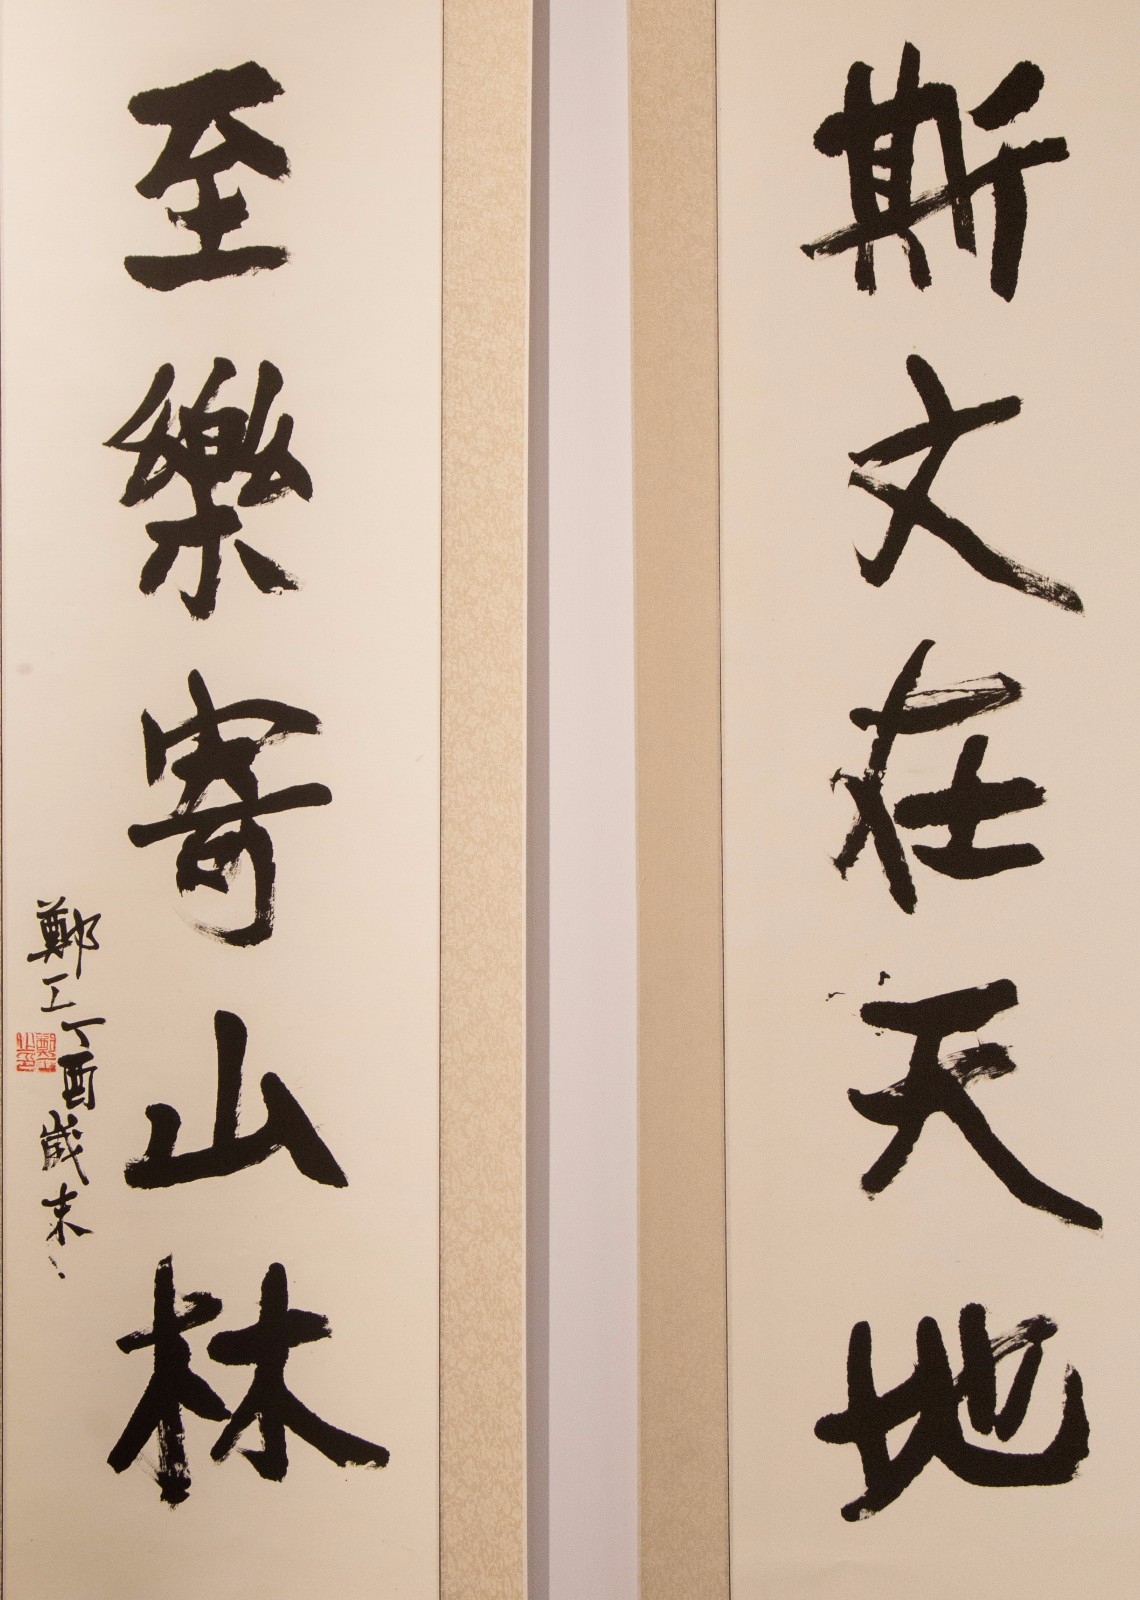 斯文在天地
至樂寄山林
鄭工丁酉歲末